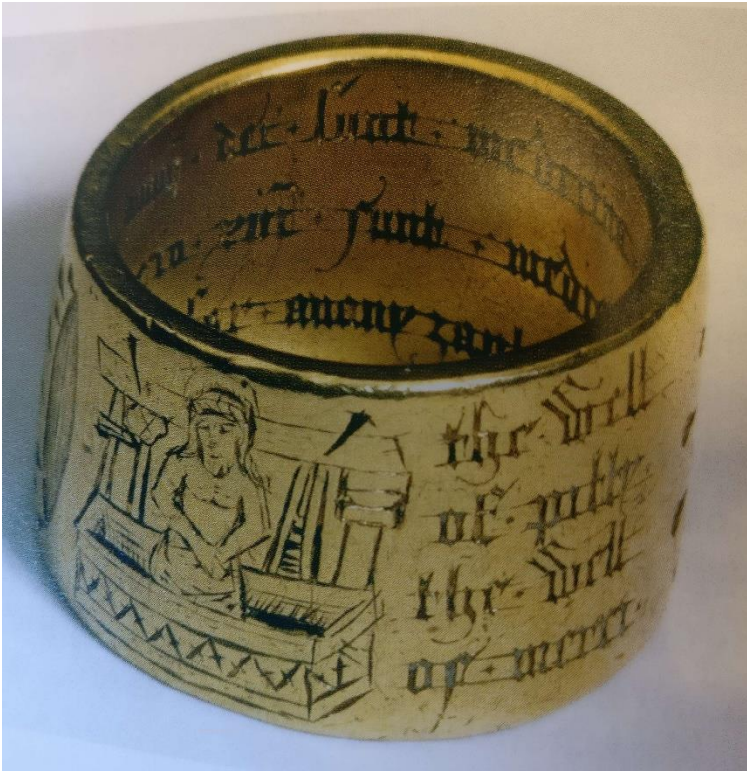 dei · sunt · medicina
sunt · medi
ananyzapt
the · well
of · pitty ·
the · well
of · merci ·